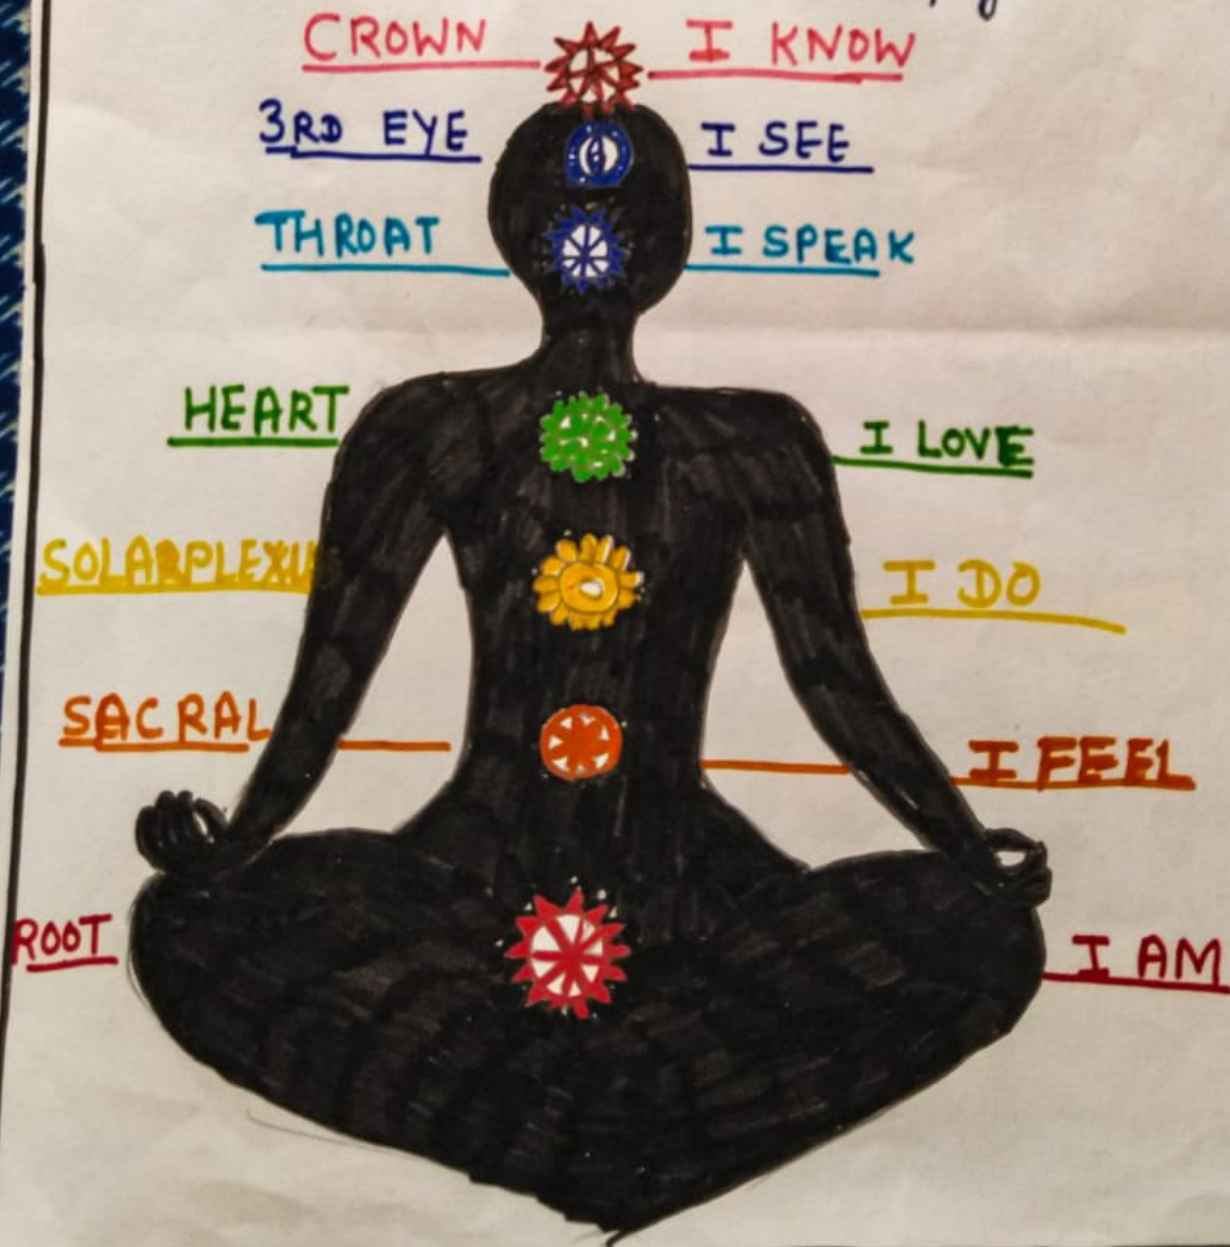 CROWN I KNOW
3RD EYE I SEE
THROAT I SPEAK
HEART I LOVE
SOLARPLEXUS I DO
SACRAL I FEEL
ROOT I AM